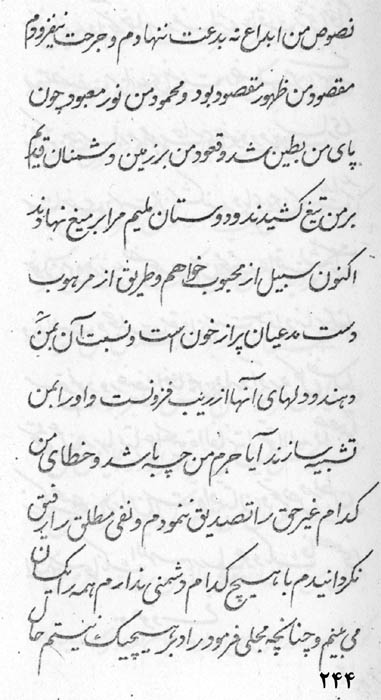 نصوص من ابداع نه بدعت ننهادم و حرجت نیفزودم
مقصود من ظهور مقصود بود و محمود من نور معبود چون
پای من بطین شد و قعود من بر زمین دشمنان قدیم
بر من تیغ کشیدند و دوستان ملیم مرا بر میغ نهادند
اکنون سبیل از محبوب خواهم و طریق از مرهوب
دست مدعیان پر از خون است و نسبت آن بمن
دهند و دلهای آنها از ریب فزونست و او را بمن
تشبیه سازند آیا جرم من چه باشد و خطای من
کدام غیر حق را تصدیق ننمودم و نفی مطلق را رفیق
نگردانیدم با هیچ کدام دشمنی ندارم همه را یکسان
می بینم و چنانچه مجلی فرمود راد بر هیچیک نیستم حال
۲۴۴